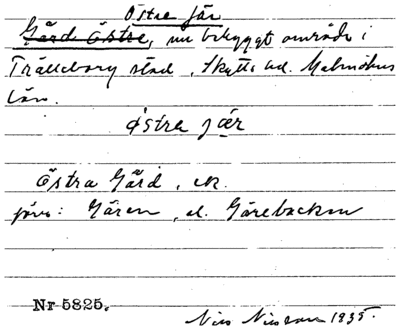 Östra Jär
Gärd Östra, nu bebyggt område i
Trälleborg stad, Skytts hd. Malmöhus
län.
östra jär
Östra Gärd, ek.
jävr: Gären, el. Gärebacken
Nr 5825.
Nils Nilsson 1935.